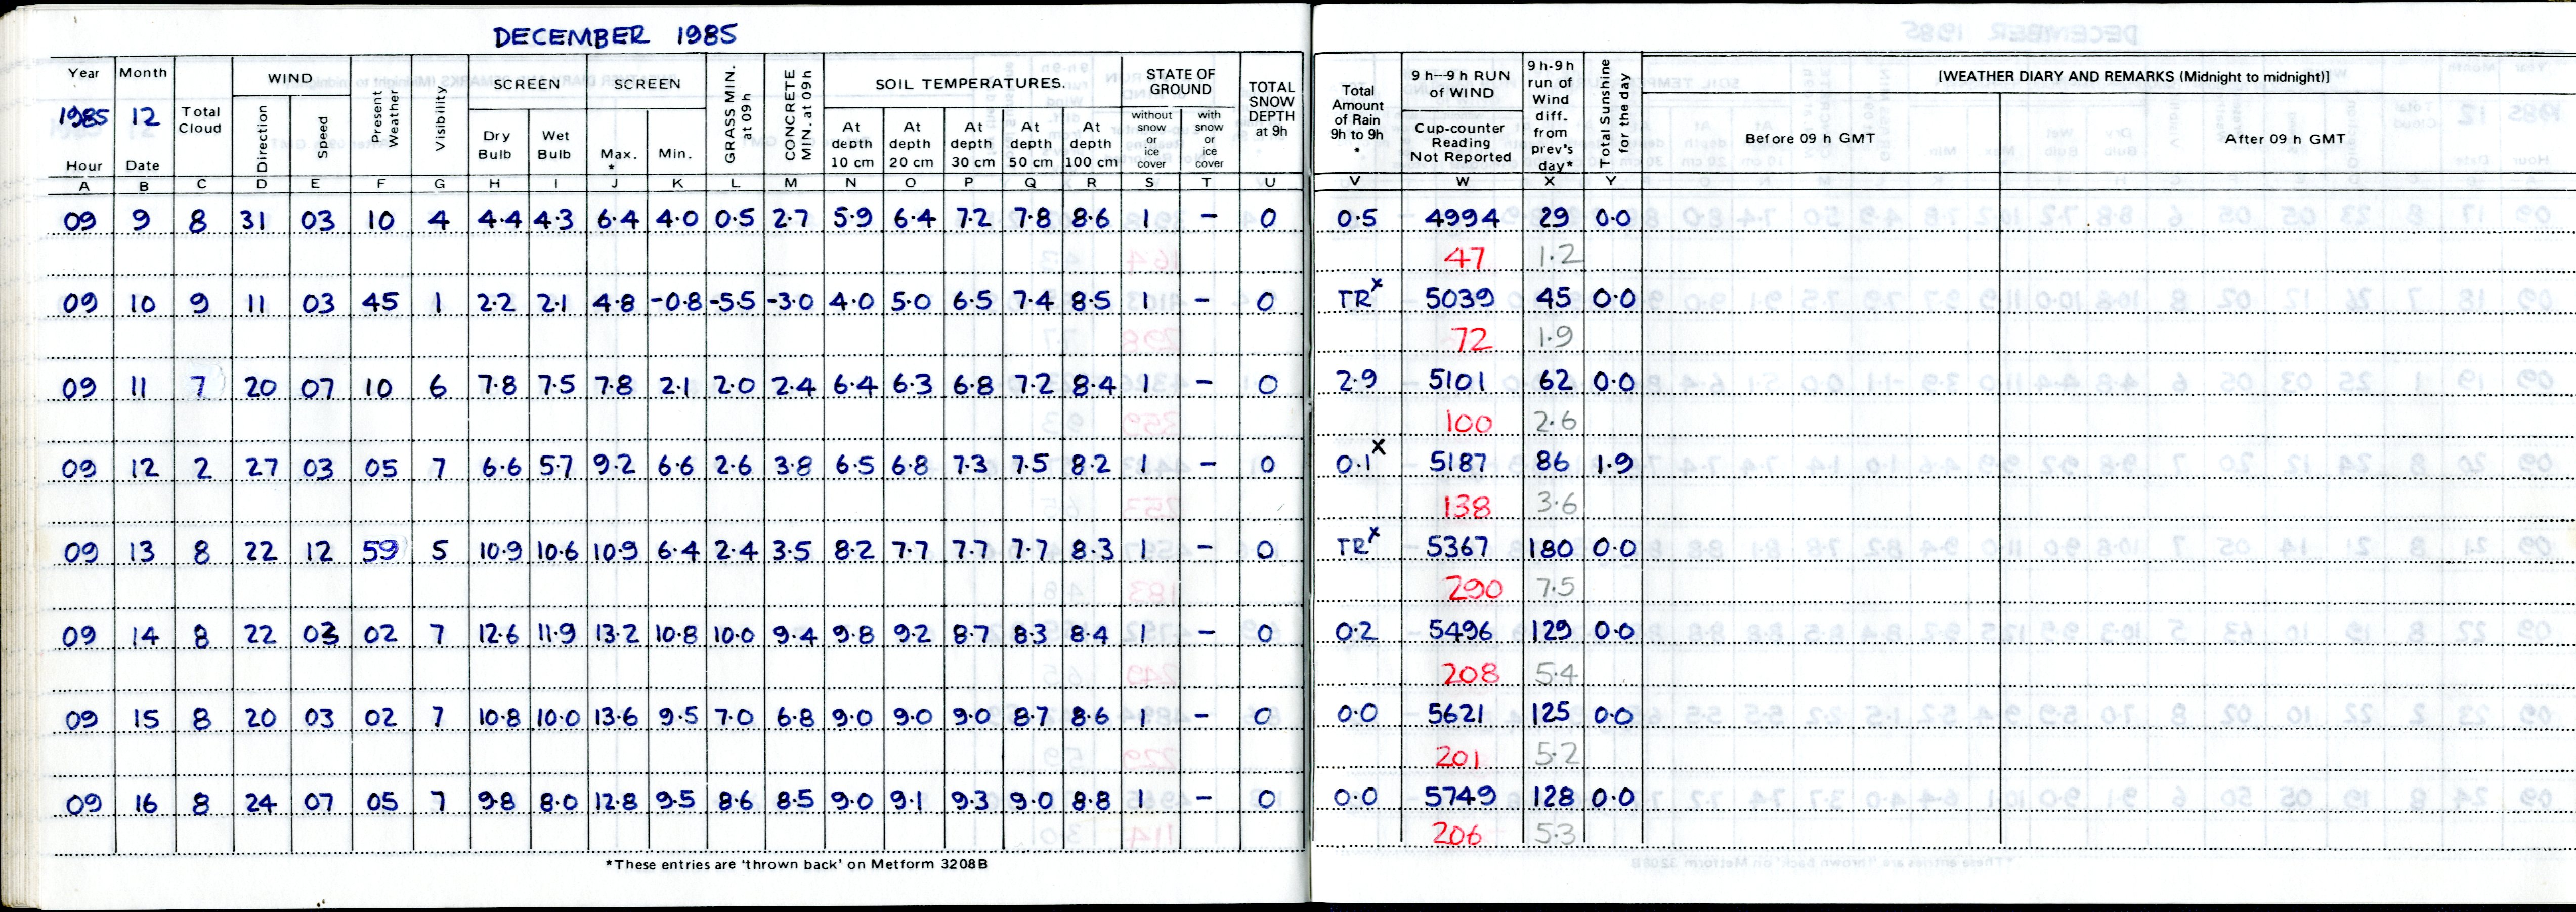 DECEMBER 1985
Year Month Total Cloud WIND Present Weather Visibility SCREEN SCREEN GRASS MIN. at 09h CONCRETE MIN. at 09h SOIL TEMPERATURES. STATE OF GROUND TOTAL SNOW DEPTH at 9h Total Amount of Rain 9h to 9h * 9 h–9 h RUN of WIND 9 h-9 h run of Wind diff. from prev's day* Total Sunshine for the day [WEATHER DIARY AND REMARKS (Midnight to midnight)]
1985 12 Direction Speed Dry Bulb Wet Bulb Max. * Min. At depth 10 cm At depth 20 cm At depth 30 cm At depth 50 cm At depth 100 cm without snow or ice cover with snow or ice cover Cup-counter Reading Not Reported Before 09 h GMT After 09 h GMT
Hour Date
A B C D E F G H I J K L M N O P Q R S T U V W X Y
09 9 8 31 03 10 4 4.4 4.3 6.4 4.0 0.5 2.7 5.9 6.4 7.2 7.8 8.6 1 – 0 0.5 4994 29 0.0
47 1.2
09 10 9 11 03 45 1 2.2 2.1 4.8 -0.8 -5.5 -3.0 4.0 5.0 6.5 7.4 8.5 1 – 0 TRx 5039 45 0.0
72 1.9
09 11 7 20 07 10 6 7.8 7.5 7.8 2.1 2.0 2.4 6.4 6.3 6.8 7.2 8.4 1 – 0 2.9 5101 62 0.0
100 2.6
09 12 2 27 03 05 7 6.6 5.7 9.2 6.6 2.6 3.8 6.5 6.8 7.3 7.5 8.2 1 – 0 0.1x 5187 86 1.9
138 3.6
09 13 8 22 12 59 5 10.9 10.6 10.9 6.4 2.4 3.5 8.2 7.7 7.7 7.7 8.3 1 – 0 TRx 5367 180 0.0
290 7.5
09 14 8 22 03 02 7 12.6 11.9 13.2 10.8 10.0 9.4 9.8 9.2 8.7 8.3 8.4 1 – 0 0.2 5496 129 0.0
208 5.4
09 15 8 20 03 02 7 10.8 10.0 13.6 9.5 7.0 6.8 9.0 9.0 9.0 8.7 8.6 1 – 0 0.0 5621 125 0.0
201 5.2
09 16 8 24 07 05 7 9.8 8.0 12.8 9.5 8.6 8.5 9.0 9.1 9.3 9.0 8.8 1 – 0 0.0 5749 128 0.0
206 5.3
*These entries are 'thrown back' on Metform 3208B